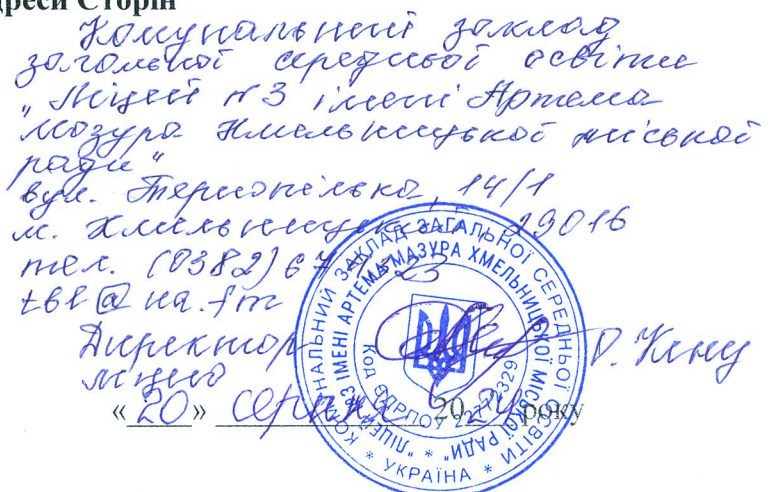 адреси Сторін
Комунальний заклад
загальної середньої освіти
„Ліцей №3 імені Артема
Мазура Хмельницької міської
ради"
вул. Тернопільська, 14/1
м. Хмельницький, 29016
тел. (0382) 67
Директор
ліцею
«20» серпня 2024 року
КОМУНАЛЬНИЙ ЗАКЛАД ЗАГАЛЬНОЇ СЕРЕДНЬОЇ ОСВІТИ
"ЛІЦЕЙ №3 ІМЕНІ АРТЕМА МАЗУРА ХМЕЛЬНИЦЬКОЇ МІСЬКОЇ РАДИ"
Код ЄДРПОУ
* УКРАЇНА *